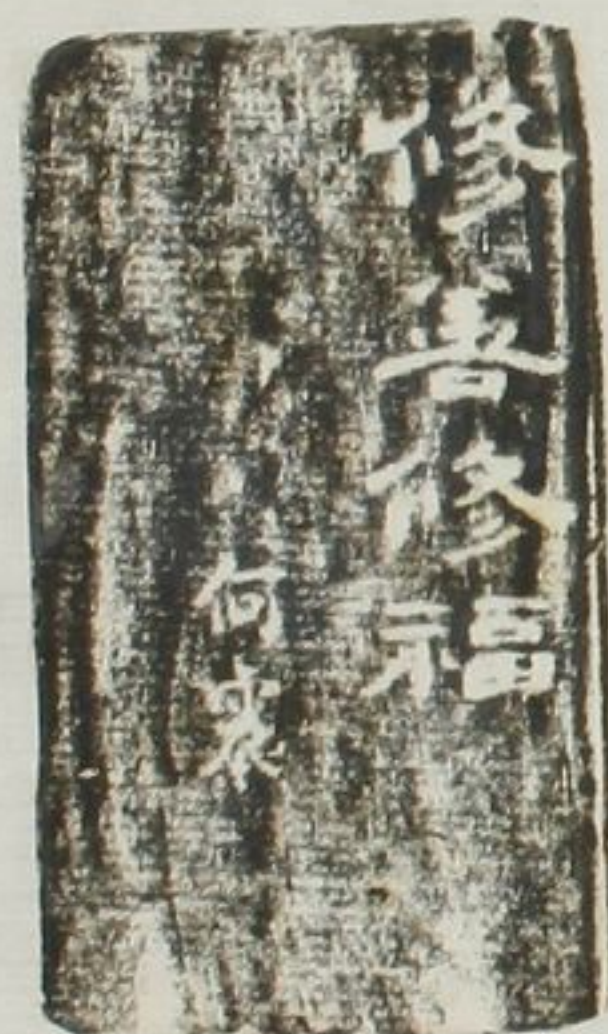 修善修福
何來